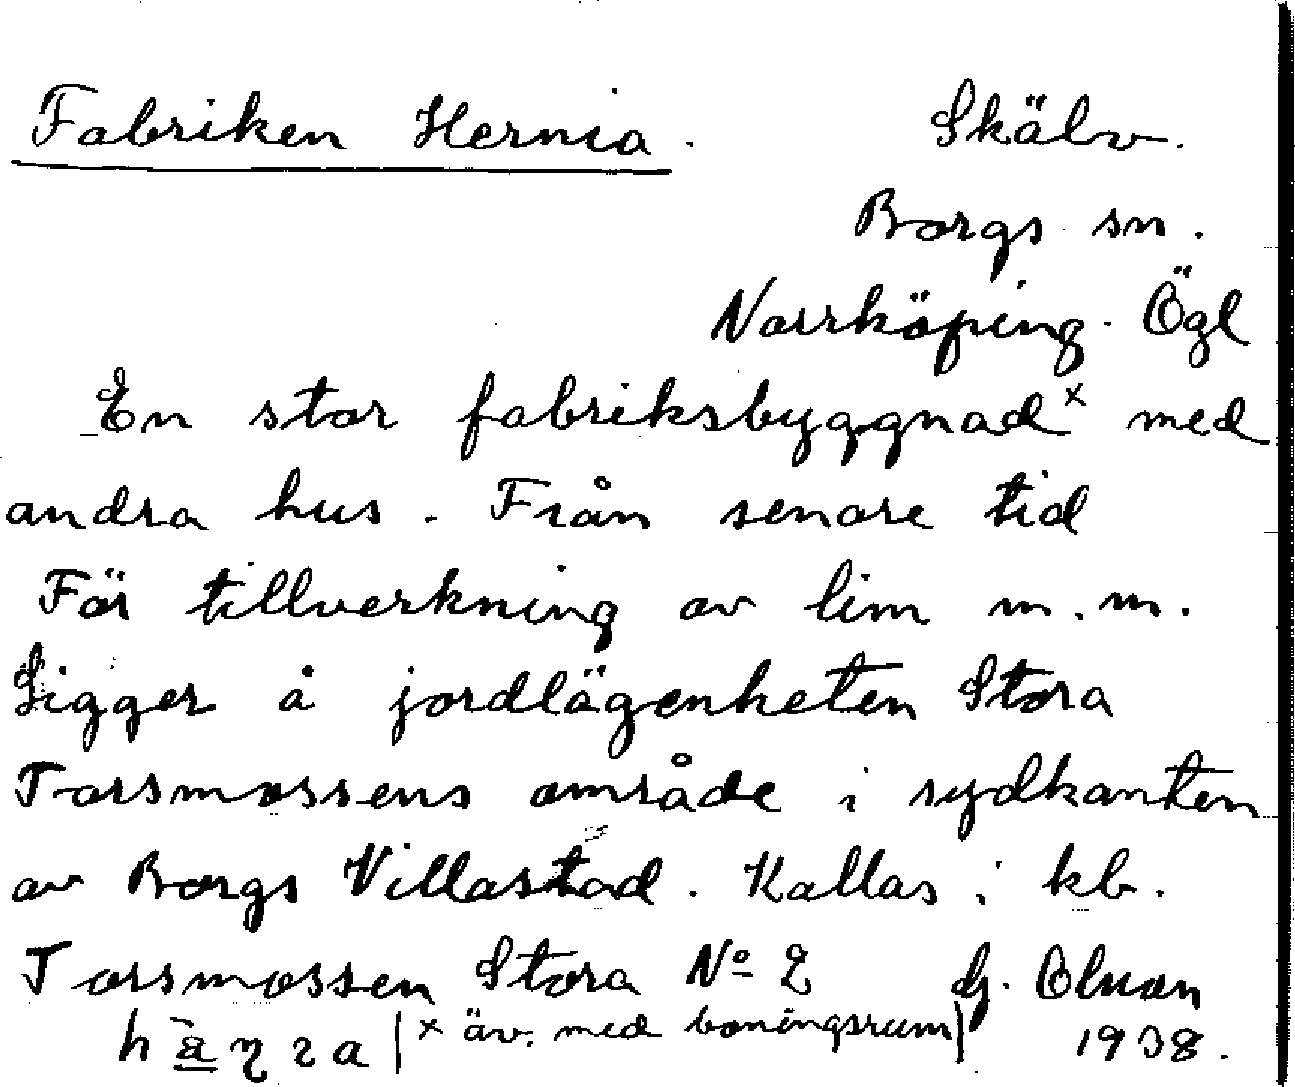 Fabriken Hernia. Skälv.
Borgs sn.
Norrköping. Ögl
En stor fabriksbyggnad x med
andra hus. Från senare tid
För tillverkning av lim m.m.
Ligger å jordlägenheten Stora
Torsmossens område i sydkanten
av Borgs Villastad. Kallas i kb.
Torsmossen Stora No 2 G. Olsson
(x äv. med boningsrum) 1938.